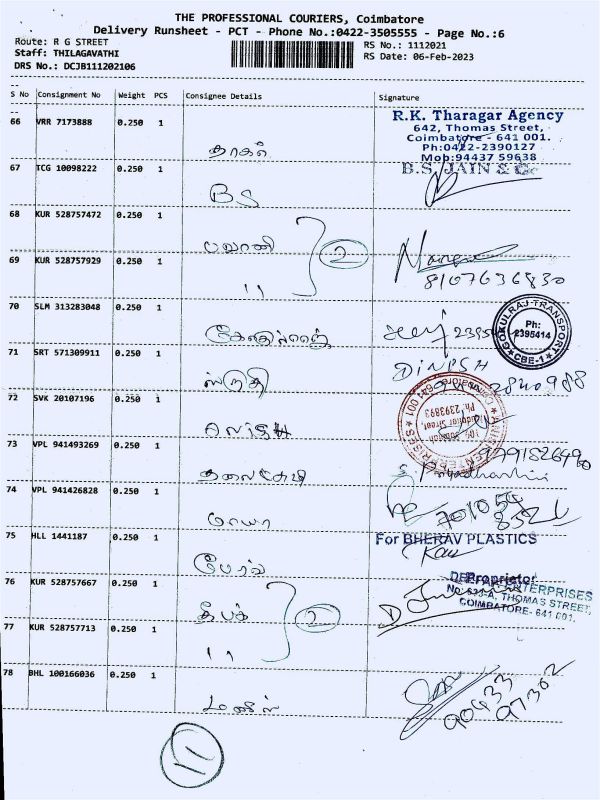 THE PROFESSIONAL COURIERS, Coimbatore
Delivery Runsheet - PCT - Phone No.:0422-3505555 - Page No.:6
Route: R G STREET
Staff: THILAGAVATHI
DRS No.: DCJB111202106
RS No.: 1112021
RS Date: 06-Feb-2023
S No Consignment No Weight PCS Consignee Details Signature
66 VRR 7173888 0.250 1
R.K. Tharagar Agency
642, Thomas Street,
Coimbatore - 641 001.
Ph:0422-2390127
Mob:94437 59638
67 TCG 10098222 0.250 1
BS
B.S. JAIN & Co
68 KUR 528757472 0.250 1
பவானி
2
69 KUR 528757929 0.250 1
"
8107636830
70 SLM 313283048 0.250 1
GOKULRAJ TRANSPORT
Ph:
2395414
CBE-1
71 SRT 571309911 0.250 1
DINESH
72 SVK 20107196 0.250 1
Ph. 2393893
73 VPL 941493269 0.250 1
9791526490
74 VPL 941426828 0.250 1
மாயா
75 HLL 1441187 0.250 1
For BHERAV PLASTICS
Proprietor
76 KUR 528757667 0.250 1
தீபக்
2
ENTERPRISES
No 633-A, THOMAS STREET,
COIMBATORE- 641 001.
77 KUR 528757713 0.250 1
"
78 BHL 100166036 0.250 1
மணிஸ்
90433
97302
11